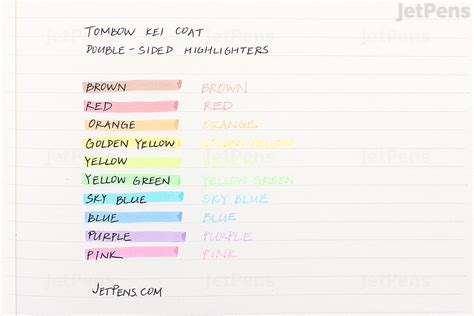 JetPens
TOMBOW KEI COAT
DOUBLE-SIDED HIGHLIGHTERS
BROWN BROWN
RED RED
ORANGE ORANGE
GOLDEN YELLOW GOLDEN YELLOW
YELLOW
YELLOW GREEN YELLOW GREEN
SKY BLUE SKY BLUE
BLUE BLUE
PURPLE PURPLE
PINK PINK
JETPENS.COM